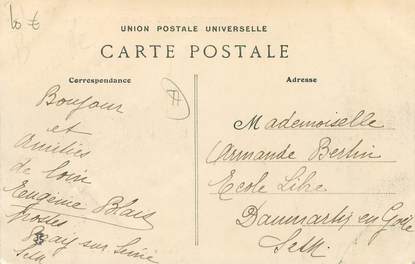 60 €
UNION POSTALE UNIVERSELLE
CARTE POSTALE
Correspondance
Adresse
Boujour
et
Amitiés
de loin
Eugenie
Postes
Bray sur Seine
S et M
Mademoiselle
Armande Bertin
Ecole Libre
Dammartin en Goële
S et M